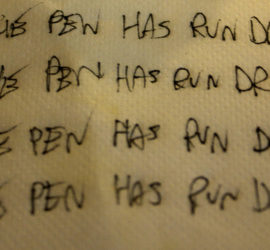 HE PEN HAS RUN DR
HE PEN HAS RUN DR
E PEN HAS RUN D
E PEN HAS RUN D